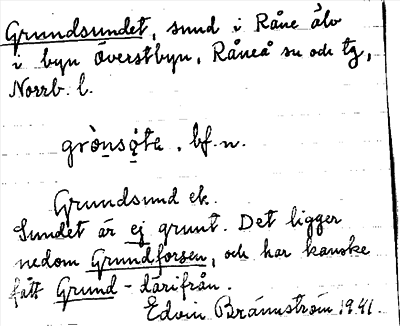 Grundsundet, sund i Råne älv
i byn Överstbyn, Råneå sn och tg,
Norrb. l.
grònsø̀ta, bf. n.
Grundsund ek.
Sundet är ej grunt. Det ligger
nedom Grundforsen, och har kanske
fått Grund- därifrån.
Edvin Brännström 1941.